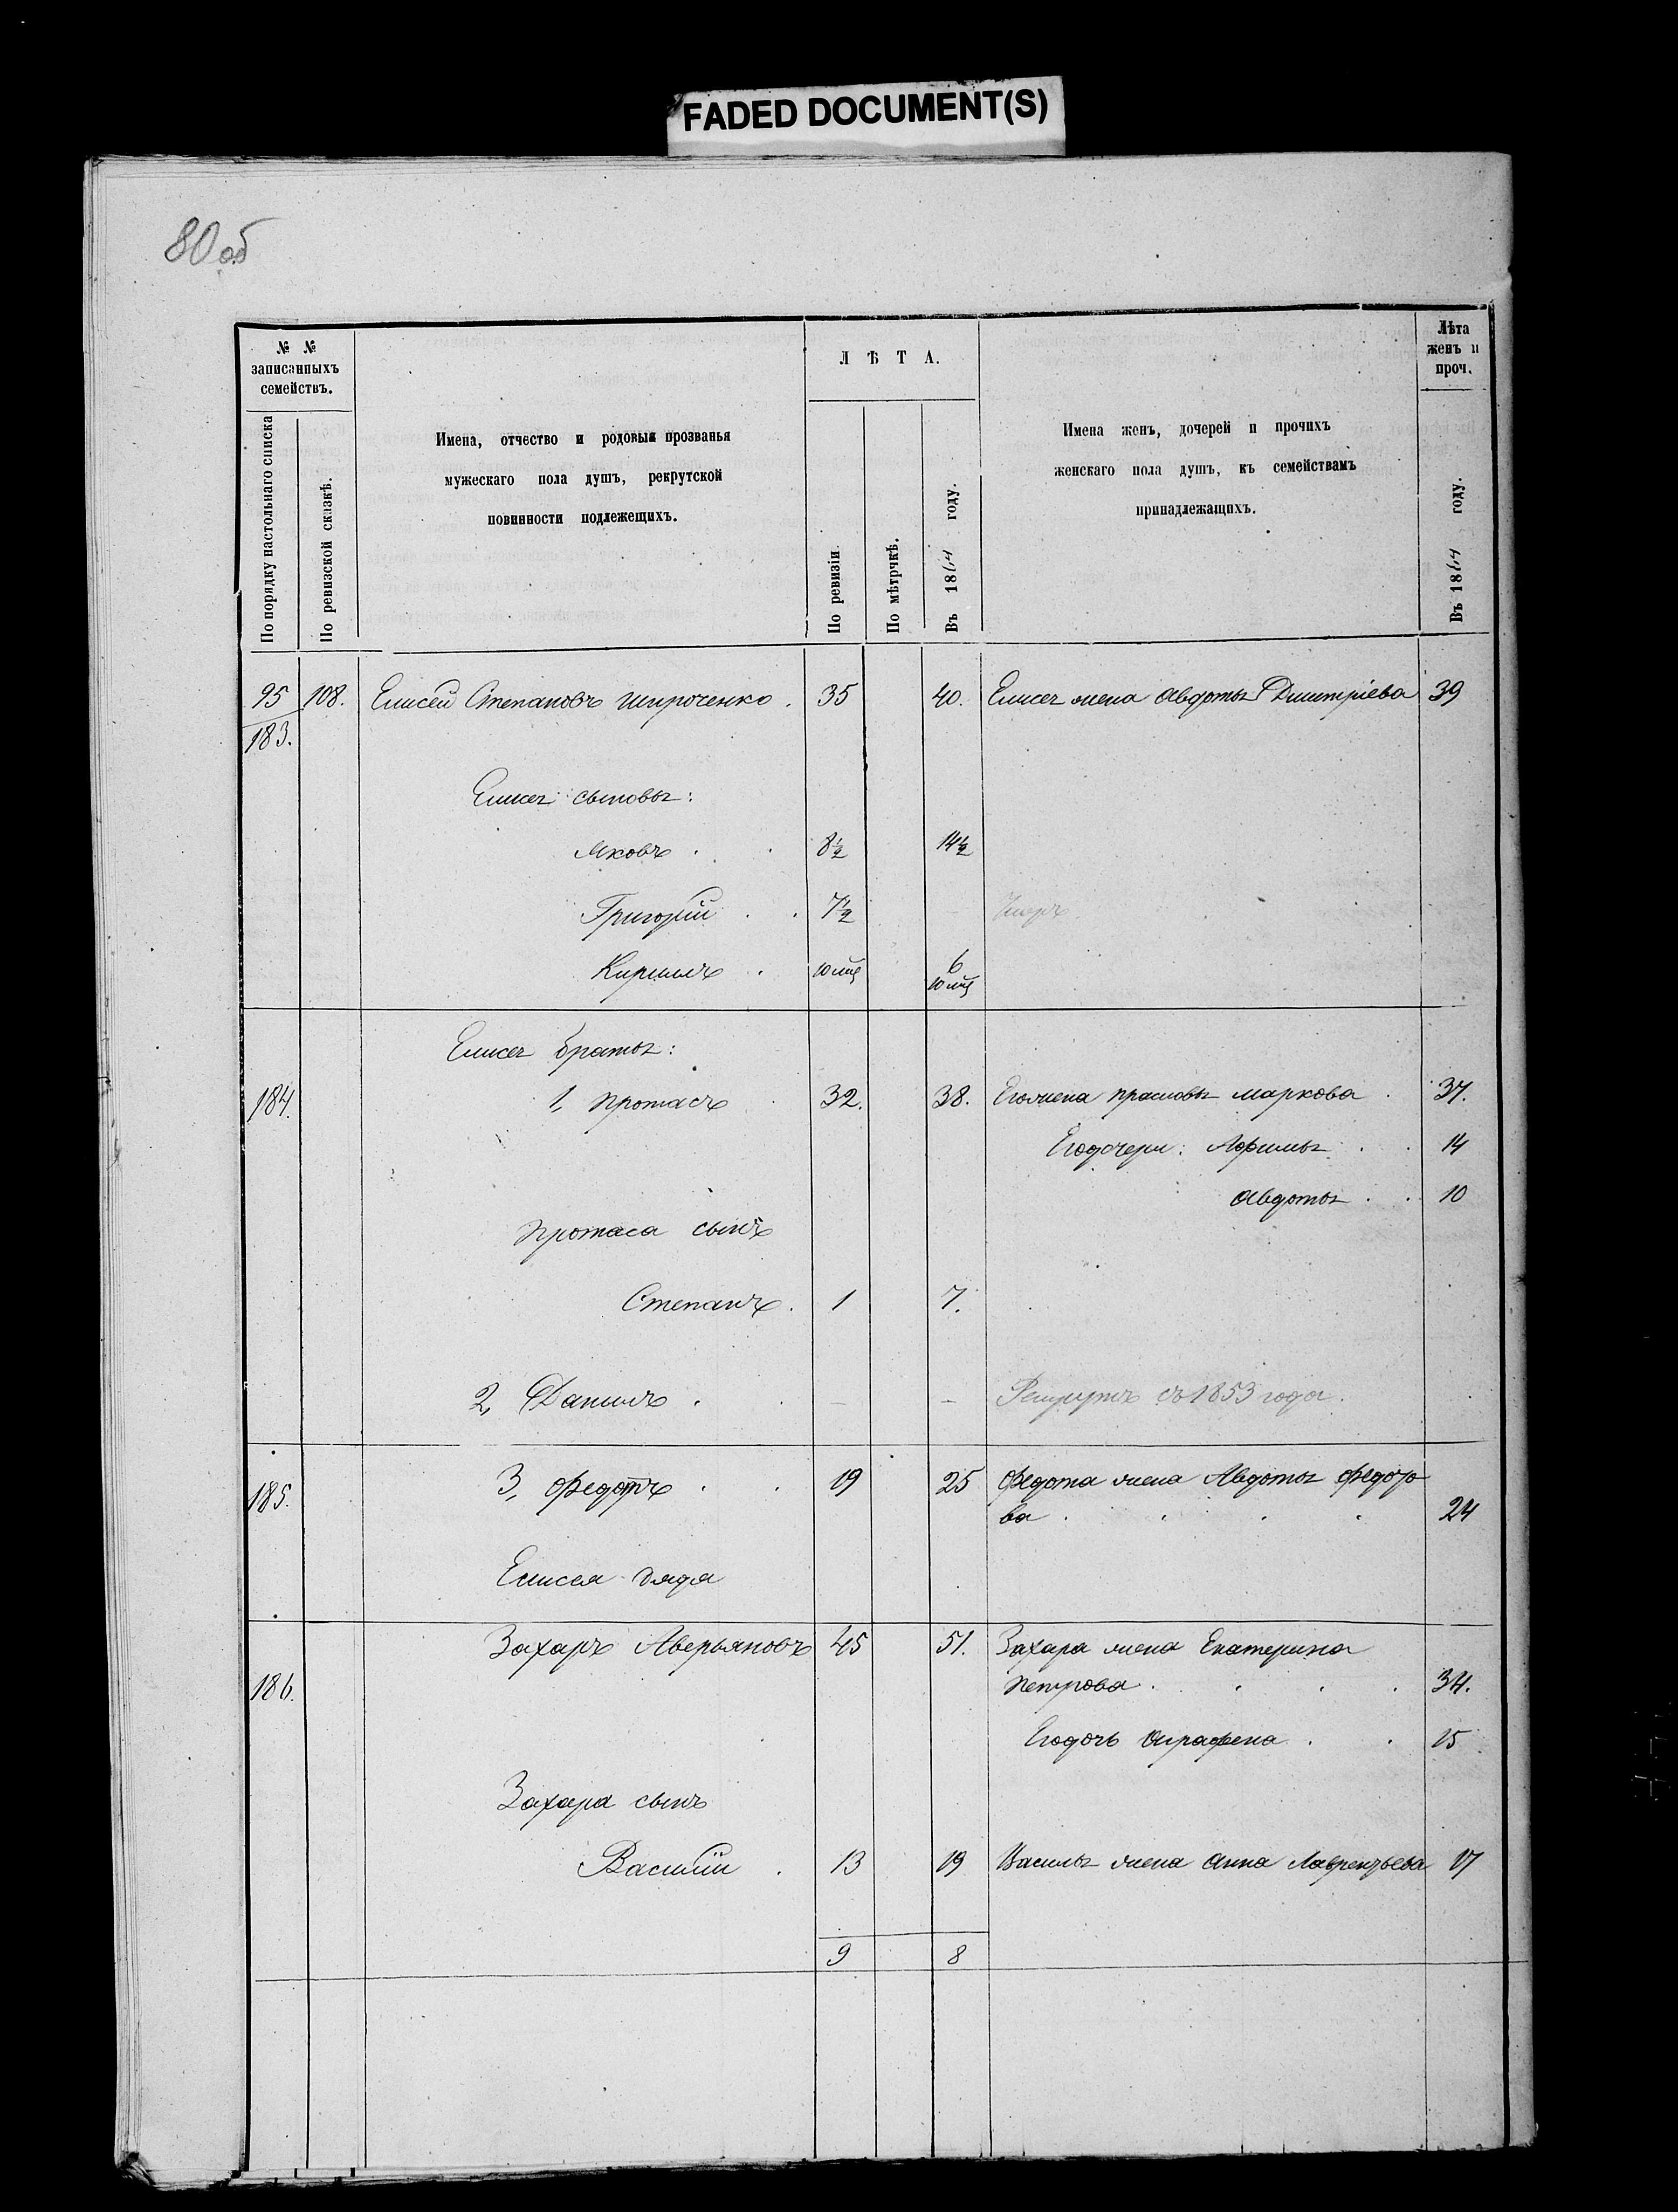 FADED DOCUMENT(S)
80 об
№ №
записанныхъ
семействъ.
По порядку настольнаго списка
По ревизской сказкѣ.
Имена, отчество и родовыя прозванья
мужескаго пола душъ, рекрутской
повинности подлежещихъ.
ЛѢТА.
По ревизіи
По мѣтрчкѣ.
Въ 1864 году.
Имена женъ, дочерей и прочихъ
женскаго пола душъ, къ семействамъ
принадлежащихъ.
Лѣта
женъ и
проч.
Въ 1864 году.
95 108. Елисей Степановъ Широченко . 35 40. Елисея жена Авдотья Дмитріева 39
183.
Елисея сыновья:
Яковъ . . 8½ 14½
Григорій . . 7½ - Умеръ
Кирилъ . 10 мц 6
10 мц
Елисея братья:
184. 1, Протасъ . 32. 38. Его жена Прасковья Маркова . 37.
Его дочери: Афимья . . 14
Авдотья . . 10
Протаса сынъ
Степанъ . 1 7.
2, Данилъ . . - - Рекрутъ съ 1853 года.
185. 3, Федотъ . . 19 25 Федота жена Авдотья Федоро
ва . . . . 24
Елисея дядя
Захаръ Аверьяновъ 45 51. Захара жена Екатерина
186. Петрова . . . . 34.
Его дочь Аграфена . . 15
Захара сынъ
Василій . 13 19 Василья жена Анна Лаврентьева 17
9 8